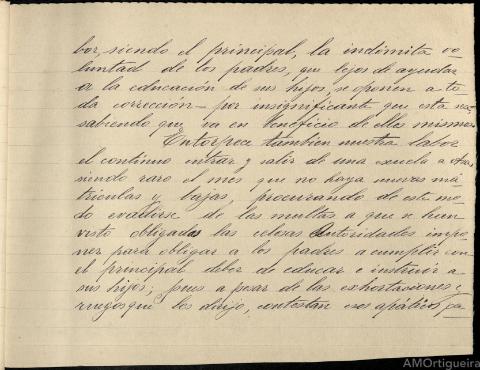 bor, siendo el principal, la indómita vo-
luntad de los padres, que lejos de ayudar
a la educación de sus hijos, se oponen a to-
da corrección por insignificante que esta sea,
sabiendo que va en beneficio de ellos mismos
Entorpece tambien nuestra labor
el continuo entrar y salir de una escuela a otra
siendo raro el mes que no haya nuevas ma-
triculas y bajas, procurando de este mo-
do evadirse de las multas a que se han
visto obligadas las celosas Autoridades impo-
ner para obligar a los padres a cumplir con
el principal deber de educar e instruir a
sus hijos; pues a pesar de las exhortaciones y
ruegos que les dirijo, contestan esos apáticos pa-
AMOrtigueira